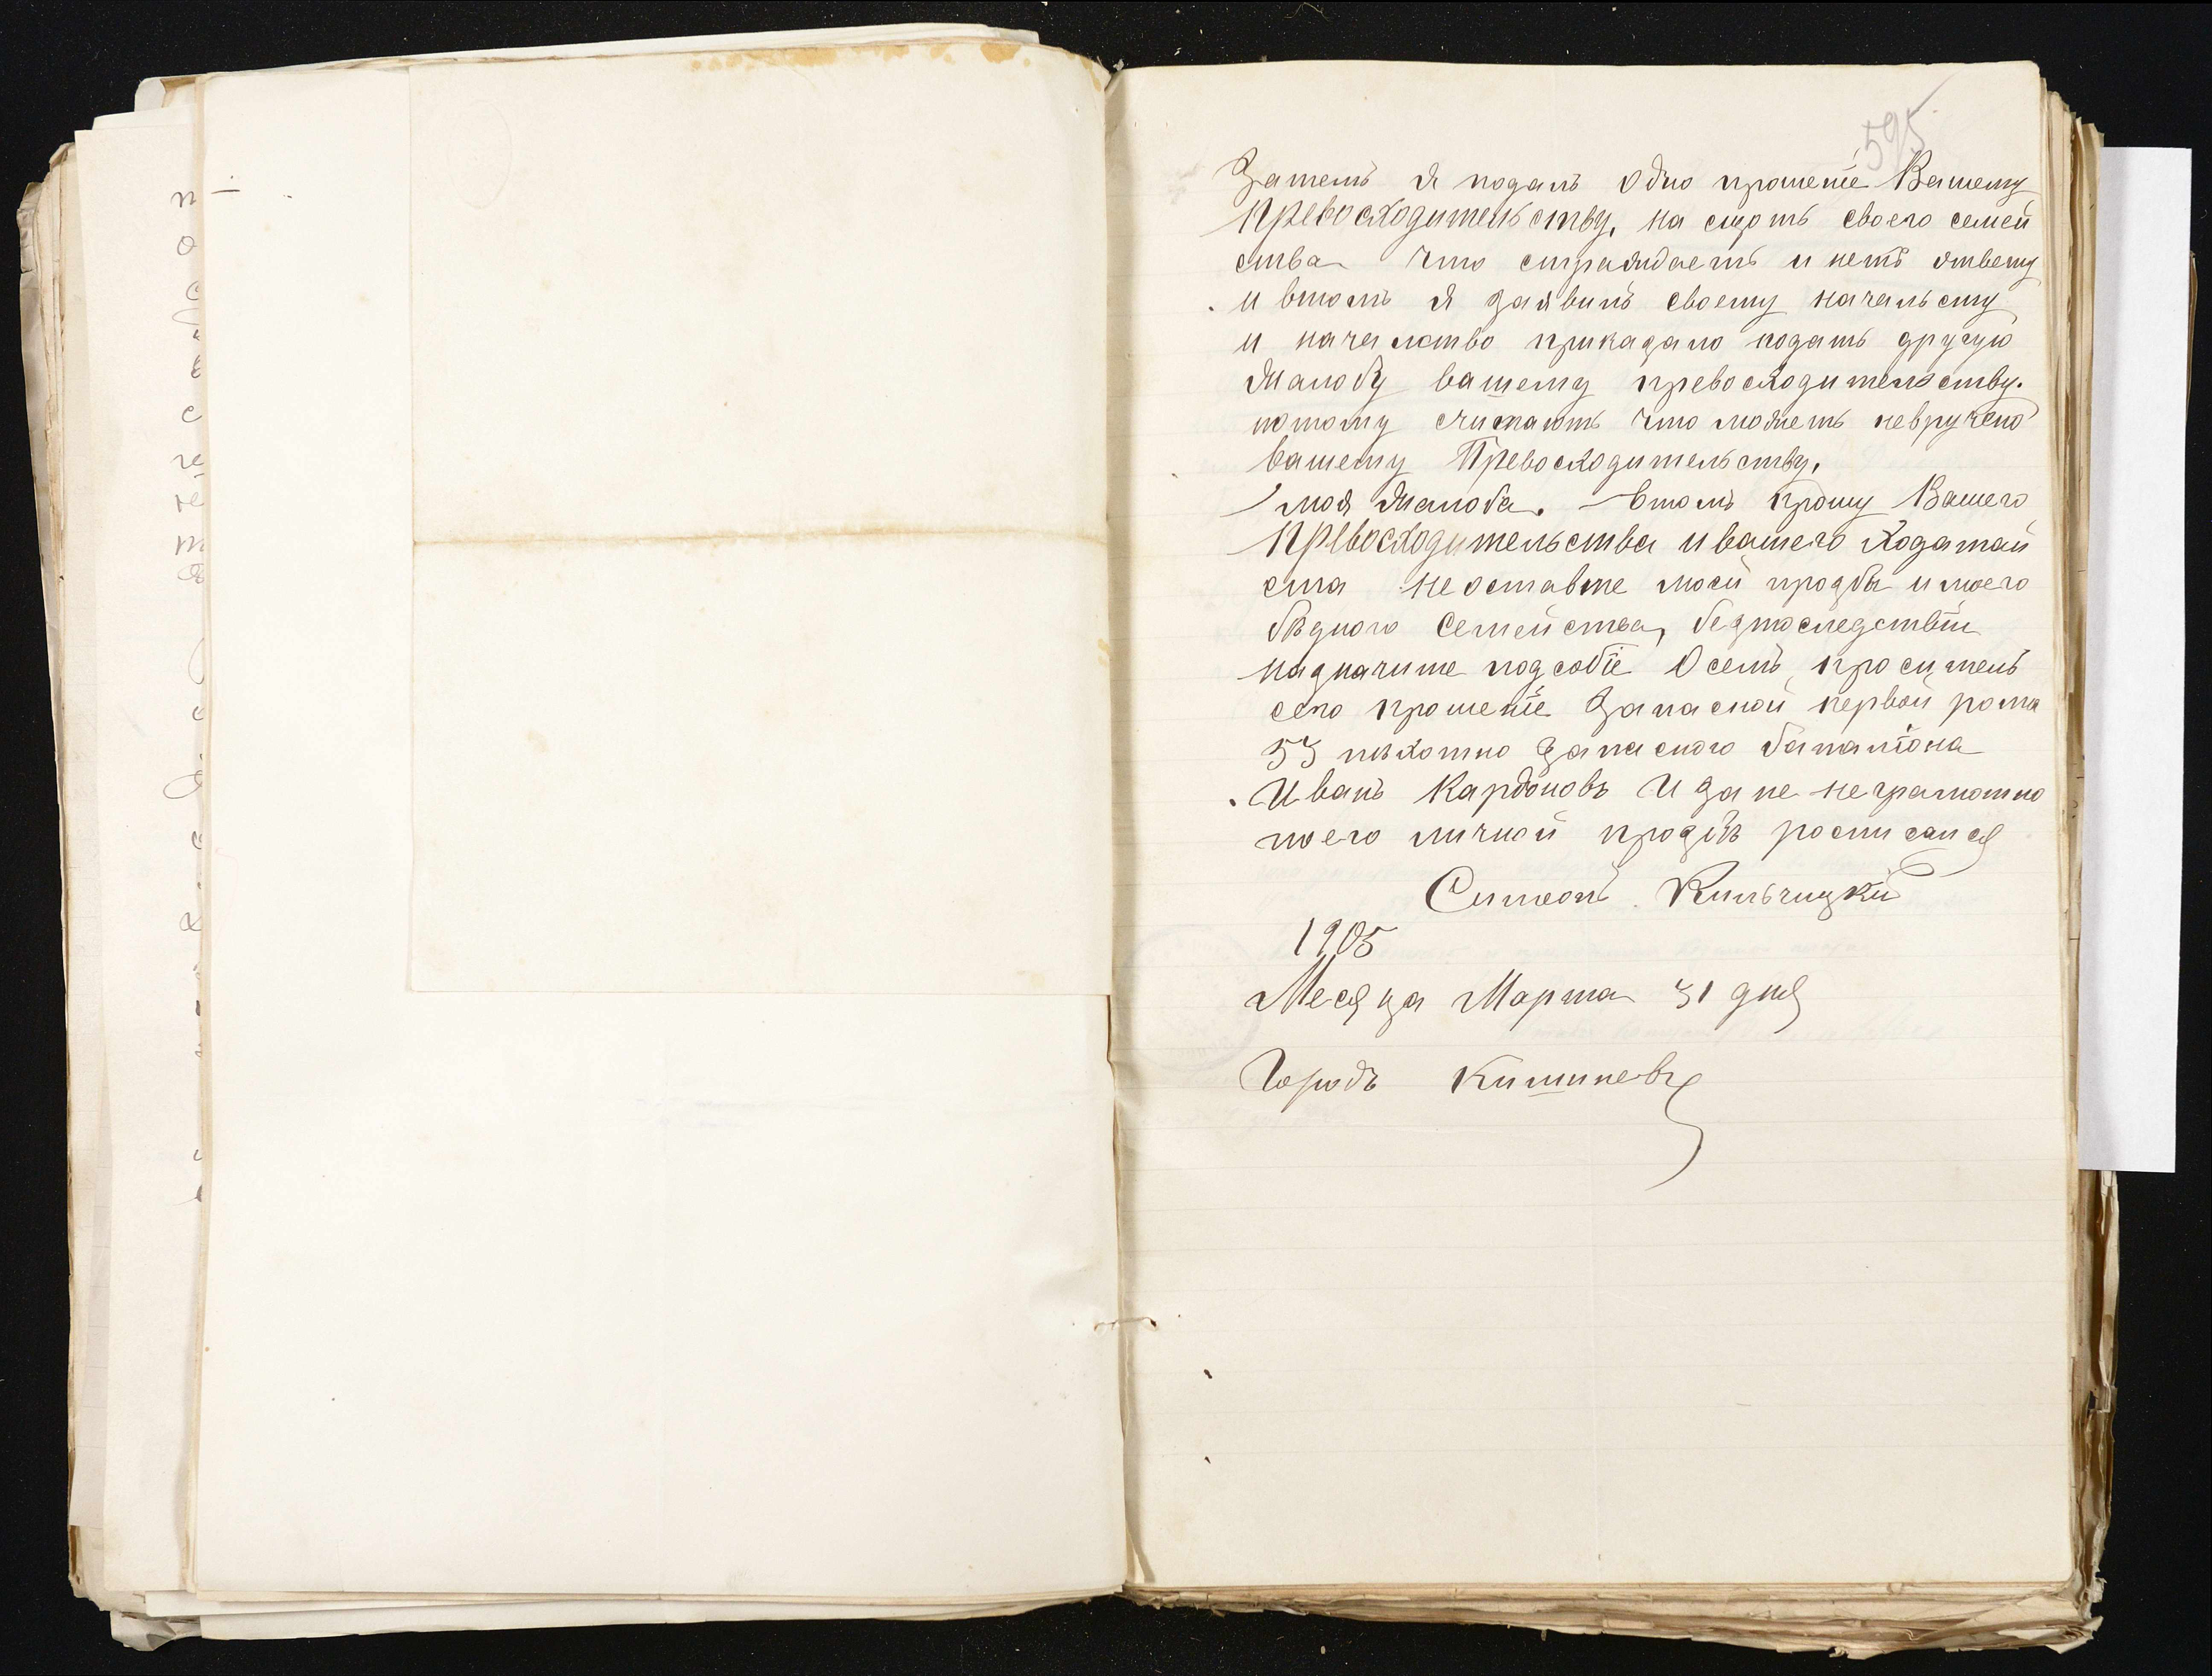 595
Затемъ я подалъ одно прошеніе Вашему
Превосходительству, на сщотъ своего семей
ства что страждаетъ и нетъ ответу
и втомъ я заявилъ своему начальсту
и началство приказало подать другую
жалобу вашему превосходительству.
потому считаютъ что можетъ невручено
вашему Превосходительству,
моя жалоба. втомъ прошу Вашего
Превосходительства и вашего ходатай
ста неоставте моей прозбы и моего
бѣдного семейства, безпоследствіи
назначите подсобіе Осемъ проситель
сего прошеніе Запасной первой рота
53 пѣхотно Запасного баталіона
Иванъ Кардоновъ И за не неграмотно
по его личной прозбѣ росписался
Симеонъ Кильчицкій
1905
Месяца Марта 31 дня
Городъ Кишиневъ